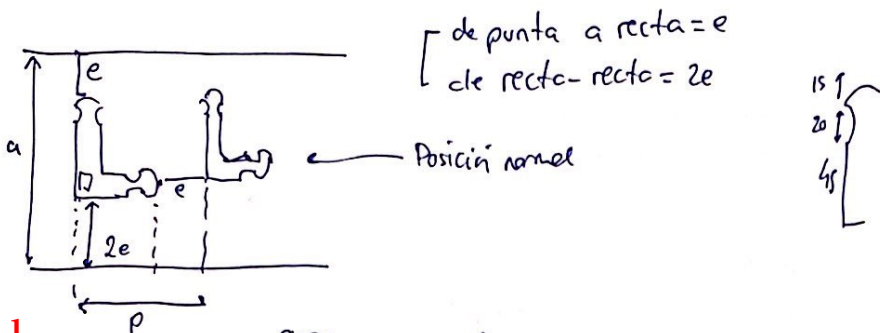 de punta a recta = e
de recta - recta = 2e
e
15
20
45
a
Posición normal
e
2e
p
1